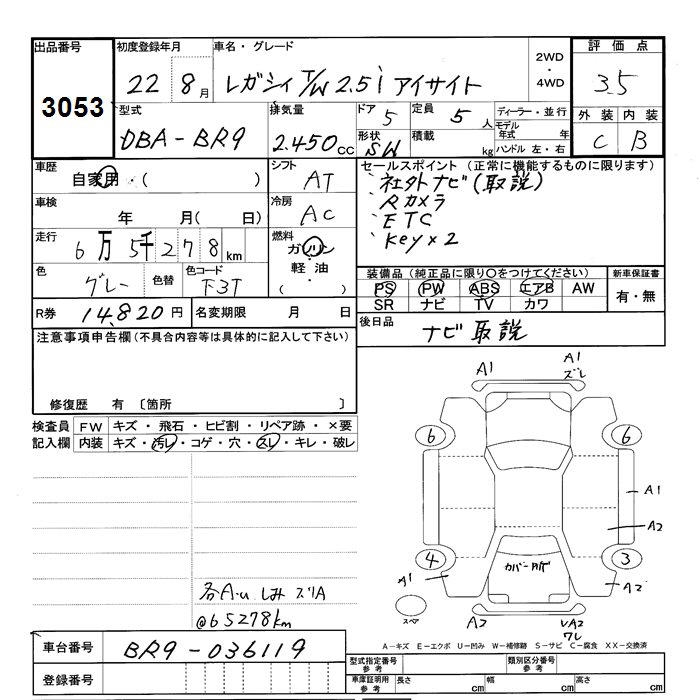 出品番号 初度登録年月 車名・グレード 2WD ・ 4WD 評価点
3053 22 8月 レガシィ T/W 2.5i アイサイト 3.5
型式 排気量 ドア 定員 ディーラー・並行 外装 内装
DBA-BR9 2.450cc 5 5人 モデル年式 年 C B
形状 SW 積載 kg ハンドル 左・右
車歴 自家用・( ) シフト AT
セールスポイント (正常に機能するものに限ります)
・社外ナビ(取説)
・Rカメラ
・ETC
・Key×2
車検 年 月( 日) 冷房 AC
走行 6万5千278km 燃料 ガソリン 軽油 ・( )
色 グレー 色替 色コード F3T
装備品 (純正品に限り○をつけてください) 新車保証書
PS PW ABS エアB AW 有・無
SR ナビ TV カワ
R券 14,820円 名変期限 月 日
後日品 ナビ取説
注意事項申告欄(不具合内容等は具体的に記入して下さい)
修復歴 有 〔箇所 〕
検査員記入欄 FW キズ・飛石・ヒビ割・リペア跡・×要
内装 キズ・汚レ・コゲ・穴・スレ・キレ・破レ
A1
A1
ズレ
6 6
A1
A2
4 3
カバー
A1 A2
スペア
A2 A2
ワレ
しみ スリA
@65278km
A-キズ E-エクボ U-凹み W-補修跡 S-サビ C-腐食 XX-交換済
車台番号 BR9-036119
型式指定番号 参考 類別区分番号 参考
登録番号 車庫証明用 参考 長さ cm 幅 cm 高さ cm